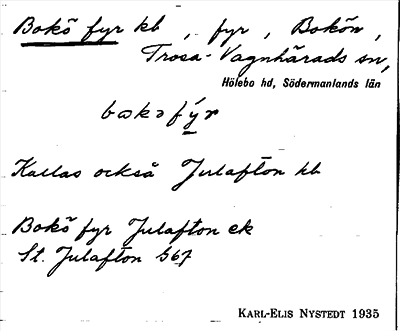 Bokö fyr kb , fyr , Bokön ,
Trosa-Vagnhärads sn,
Hölebo hd, Södermanlands län
bokofý̱r
Kallas också Julafton kb
Bokö fyr Julafton ek
St. Julafton 567
KARL-ELIS NYSTEDT 1935